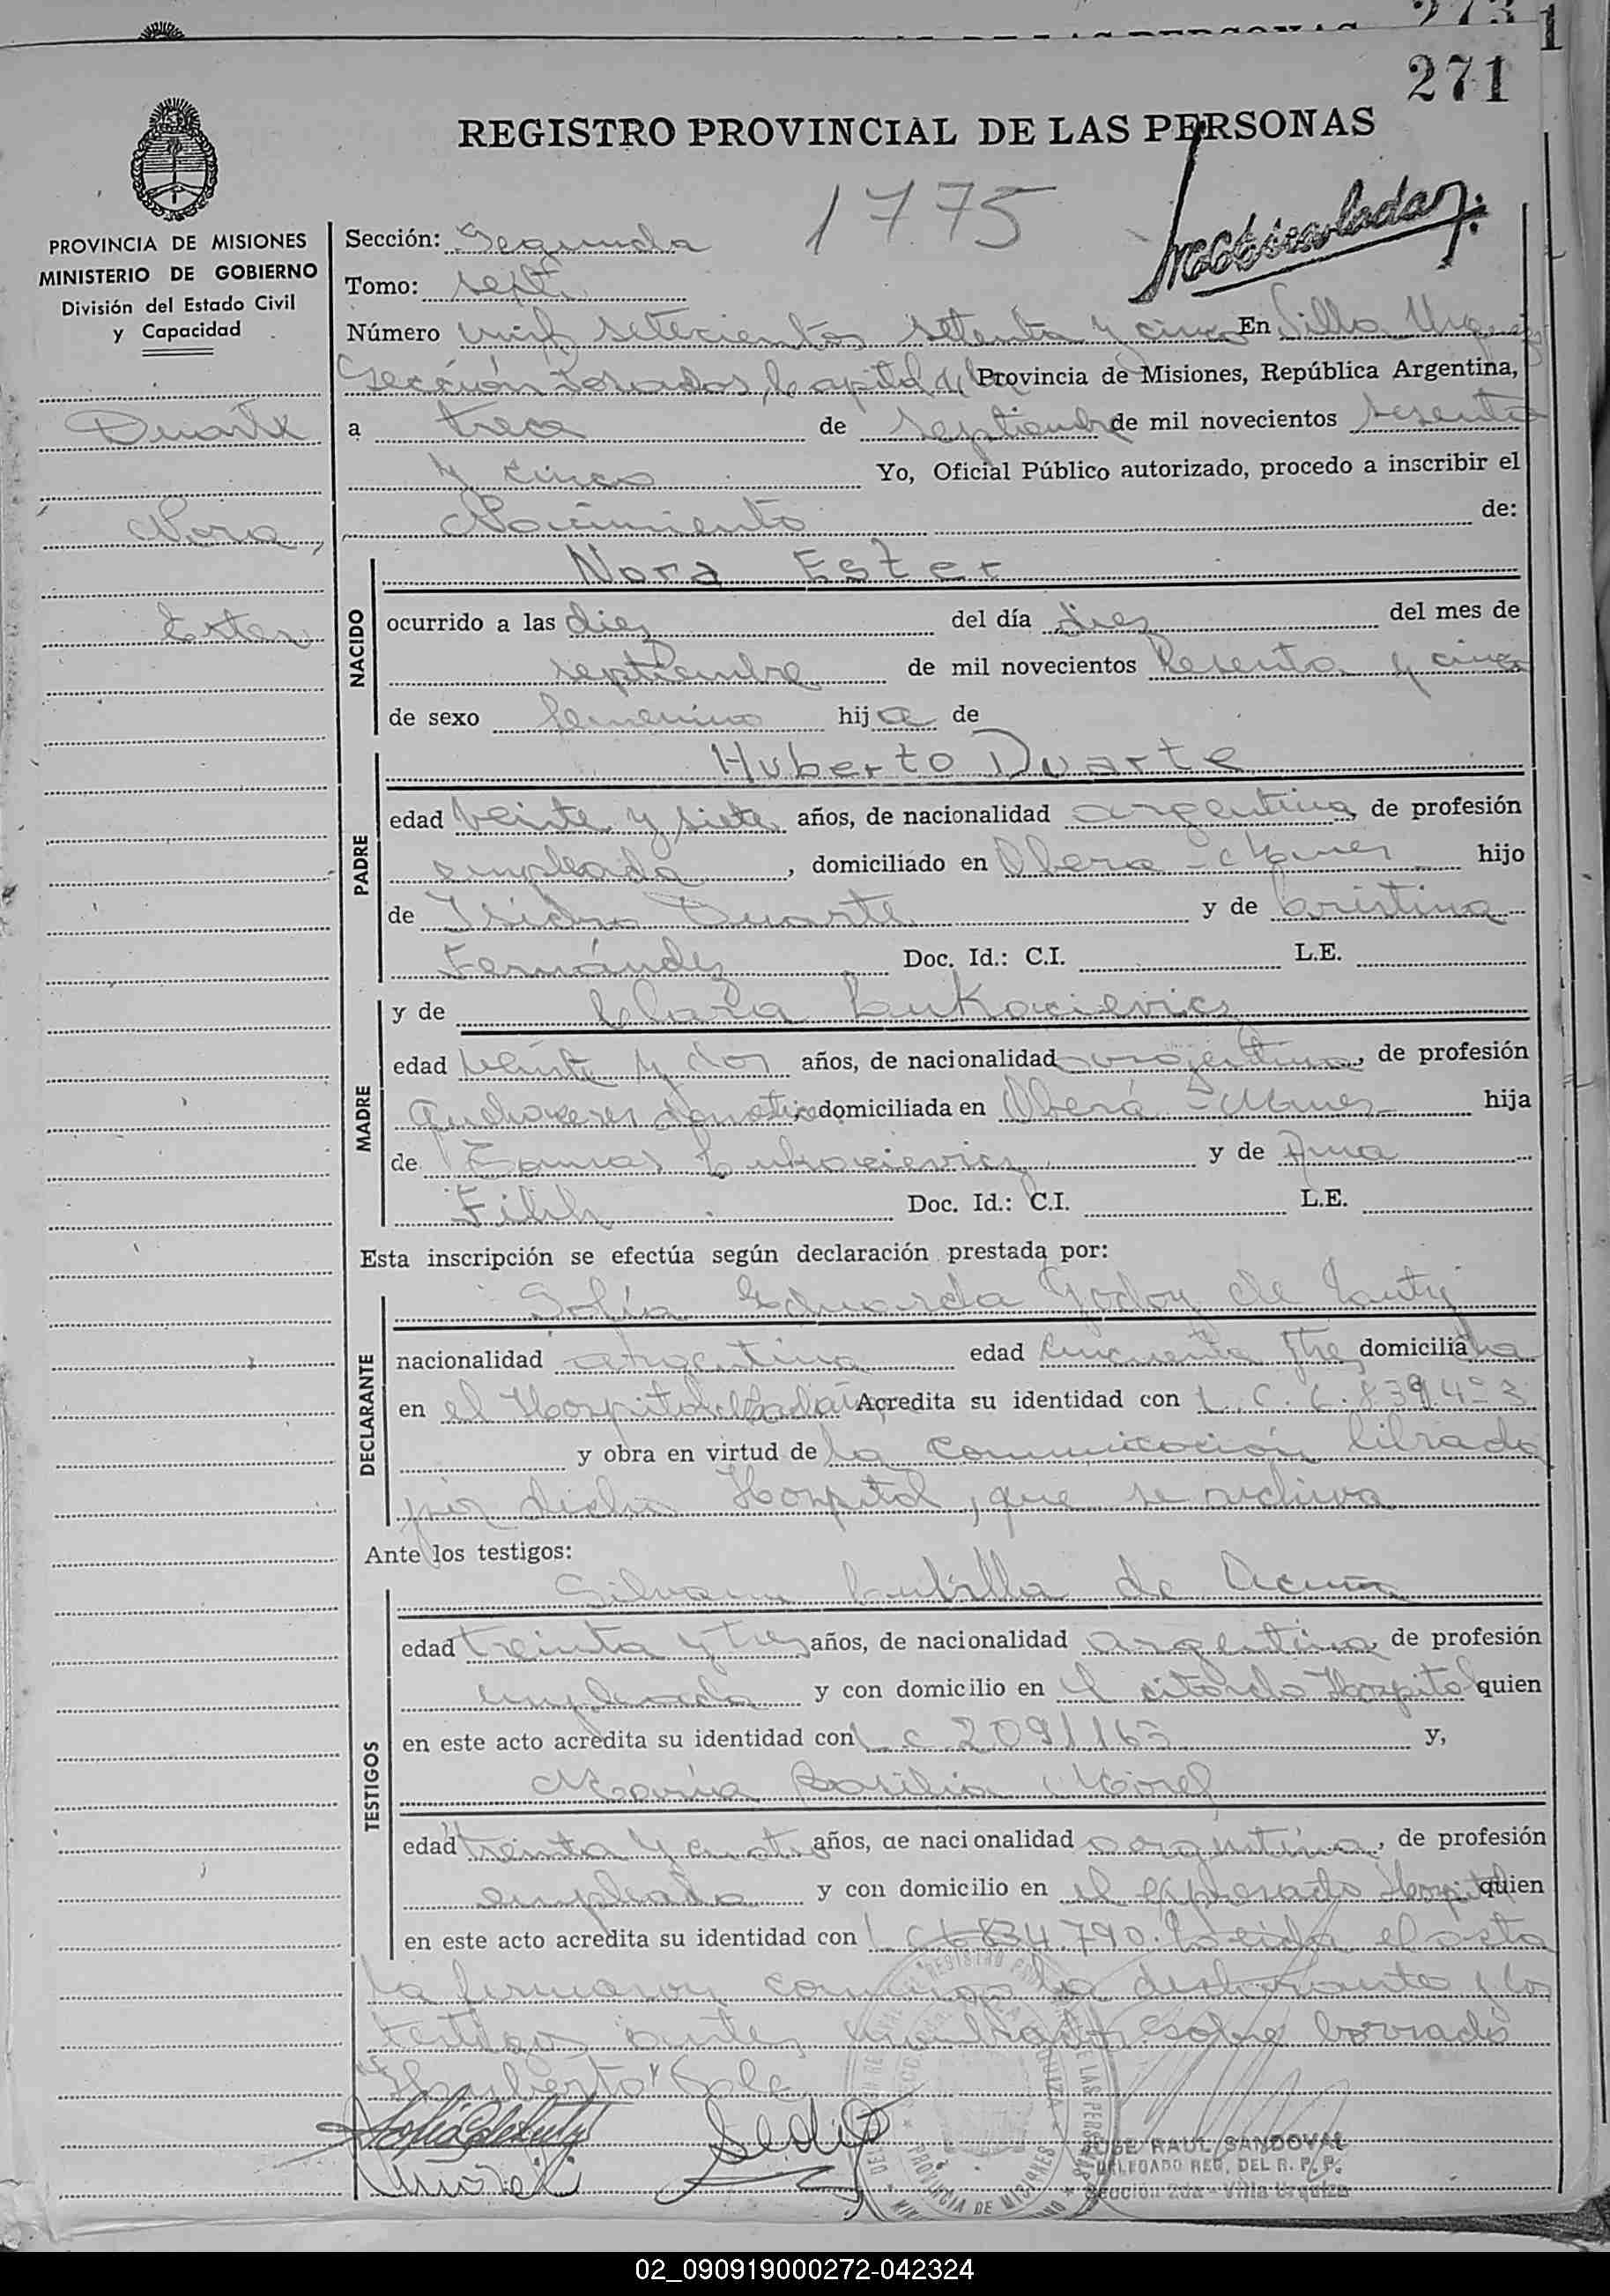 271
REGISTRO PROVINCIAL DE LAS PERSONAS
1775
PROVINCIA DE MISIONES
MINISTERIO DE GOBIERNO
División del Estado Civil
y Capacidad
Duarte
Nora,
Ester
Sección: Segunda
Tomo: sept
Número mil setecientos setenta y cinco En Villa Urquiza
Sección Posadas, Capital de Provincia de Misiones, República Argentina,
a trece de septiembre de mil novecientos sesenta
y cinco Yo, Oficial Público autorizado, procedo a inscribir el
Nacimiento de:
NACIDO
Nora Ester
ocurrido a las diez del día diez del mes de
septiembre de mil novecientos sesenta y cinco
de sexo femenino hija de
PADRE
Huberto Duarte
edad veinte y siete años, de nacionalidad argentina, de profesión
empleado, domiciliado en Obera - Mnes hijo
de Isidro Duarte y de Cristina
Fernández Doc. Id.: C.I. L.E.
MADRE
y de Clara Lukacievics
edad veinte y dos años, de nacionalidad argentina, de profesión
quehaceres domésticos domiciliada en Oberá - Mnes hija
de Lukacievicz y de Ana
Doc. Id.: C.I. L.E.
Esta inscripción se efectúa según declaración prestada por:
DECLARANTE
Sofía Eduarda Godoy de
nacionalidad argentina edad cincuenta y tres domiciliada
en el Hospital Acredita su identidad con L.C. 6.839.403
y obra en virtud de la comunicación librada
por dicho Hospital, que se archiva
Ante los testigos:
TESTIGOS
de Acuña
edad treinta y tres años, de nacionalidad argentina, de profesión
empleada y con domicilio en el citado Hospital quien
en este acto acredita su identidad con L C 2091163 y,
María Basilia Morel
edad treinta y cuatro años, de nacionalidad argentina, de profesión
empleada y con domicilio en el expresado Hospital quien
en este acto acredita su identidad con L C 6834.790. Leída el acta
la firmaron conmigo la declarante y los
testigos antes nombrados sobre borrado
"Huberto" Vale
JOSE RAUL SANDOVAL
DELEGADO REG. DEL R. P. P.
Sección 2da - Villa Urquiza
PROVINCIA DE MISIONES
02_090919000272-042324